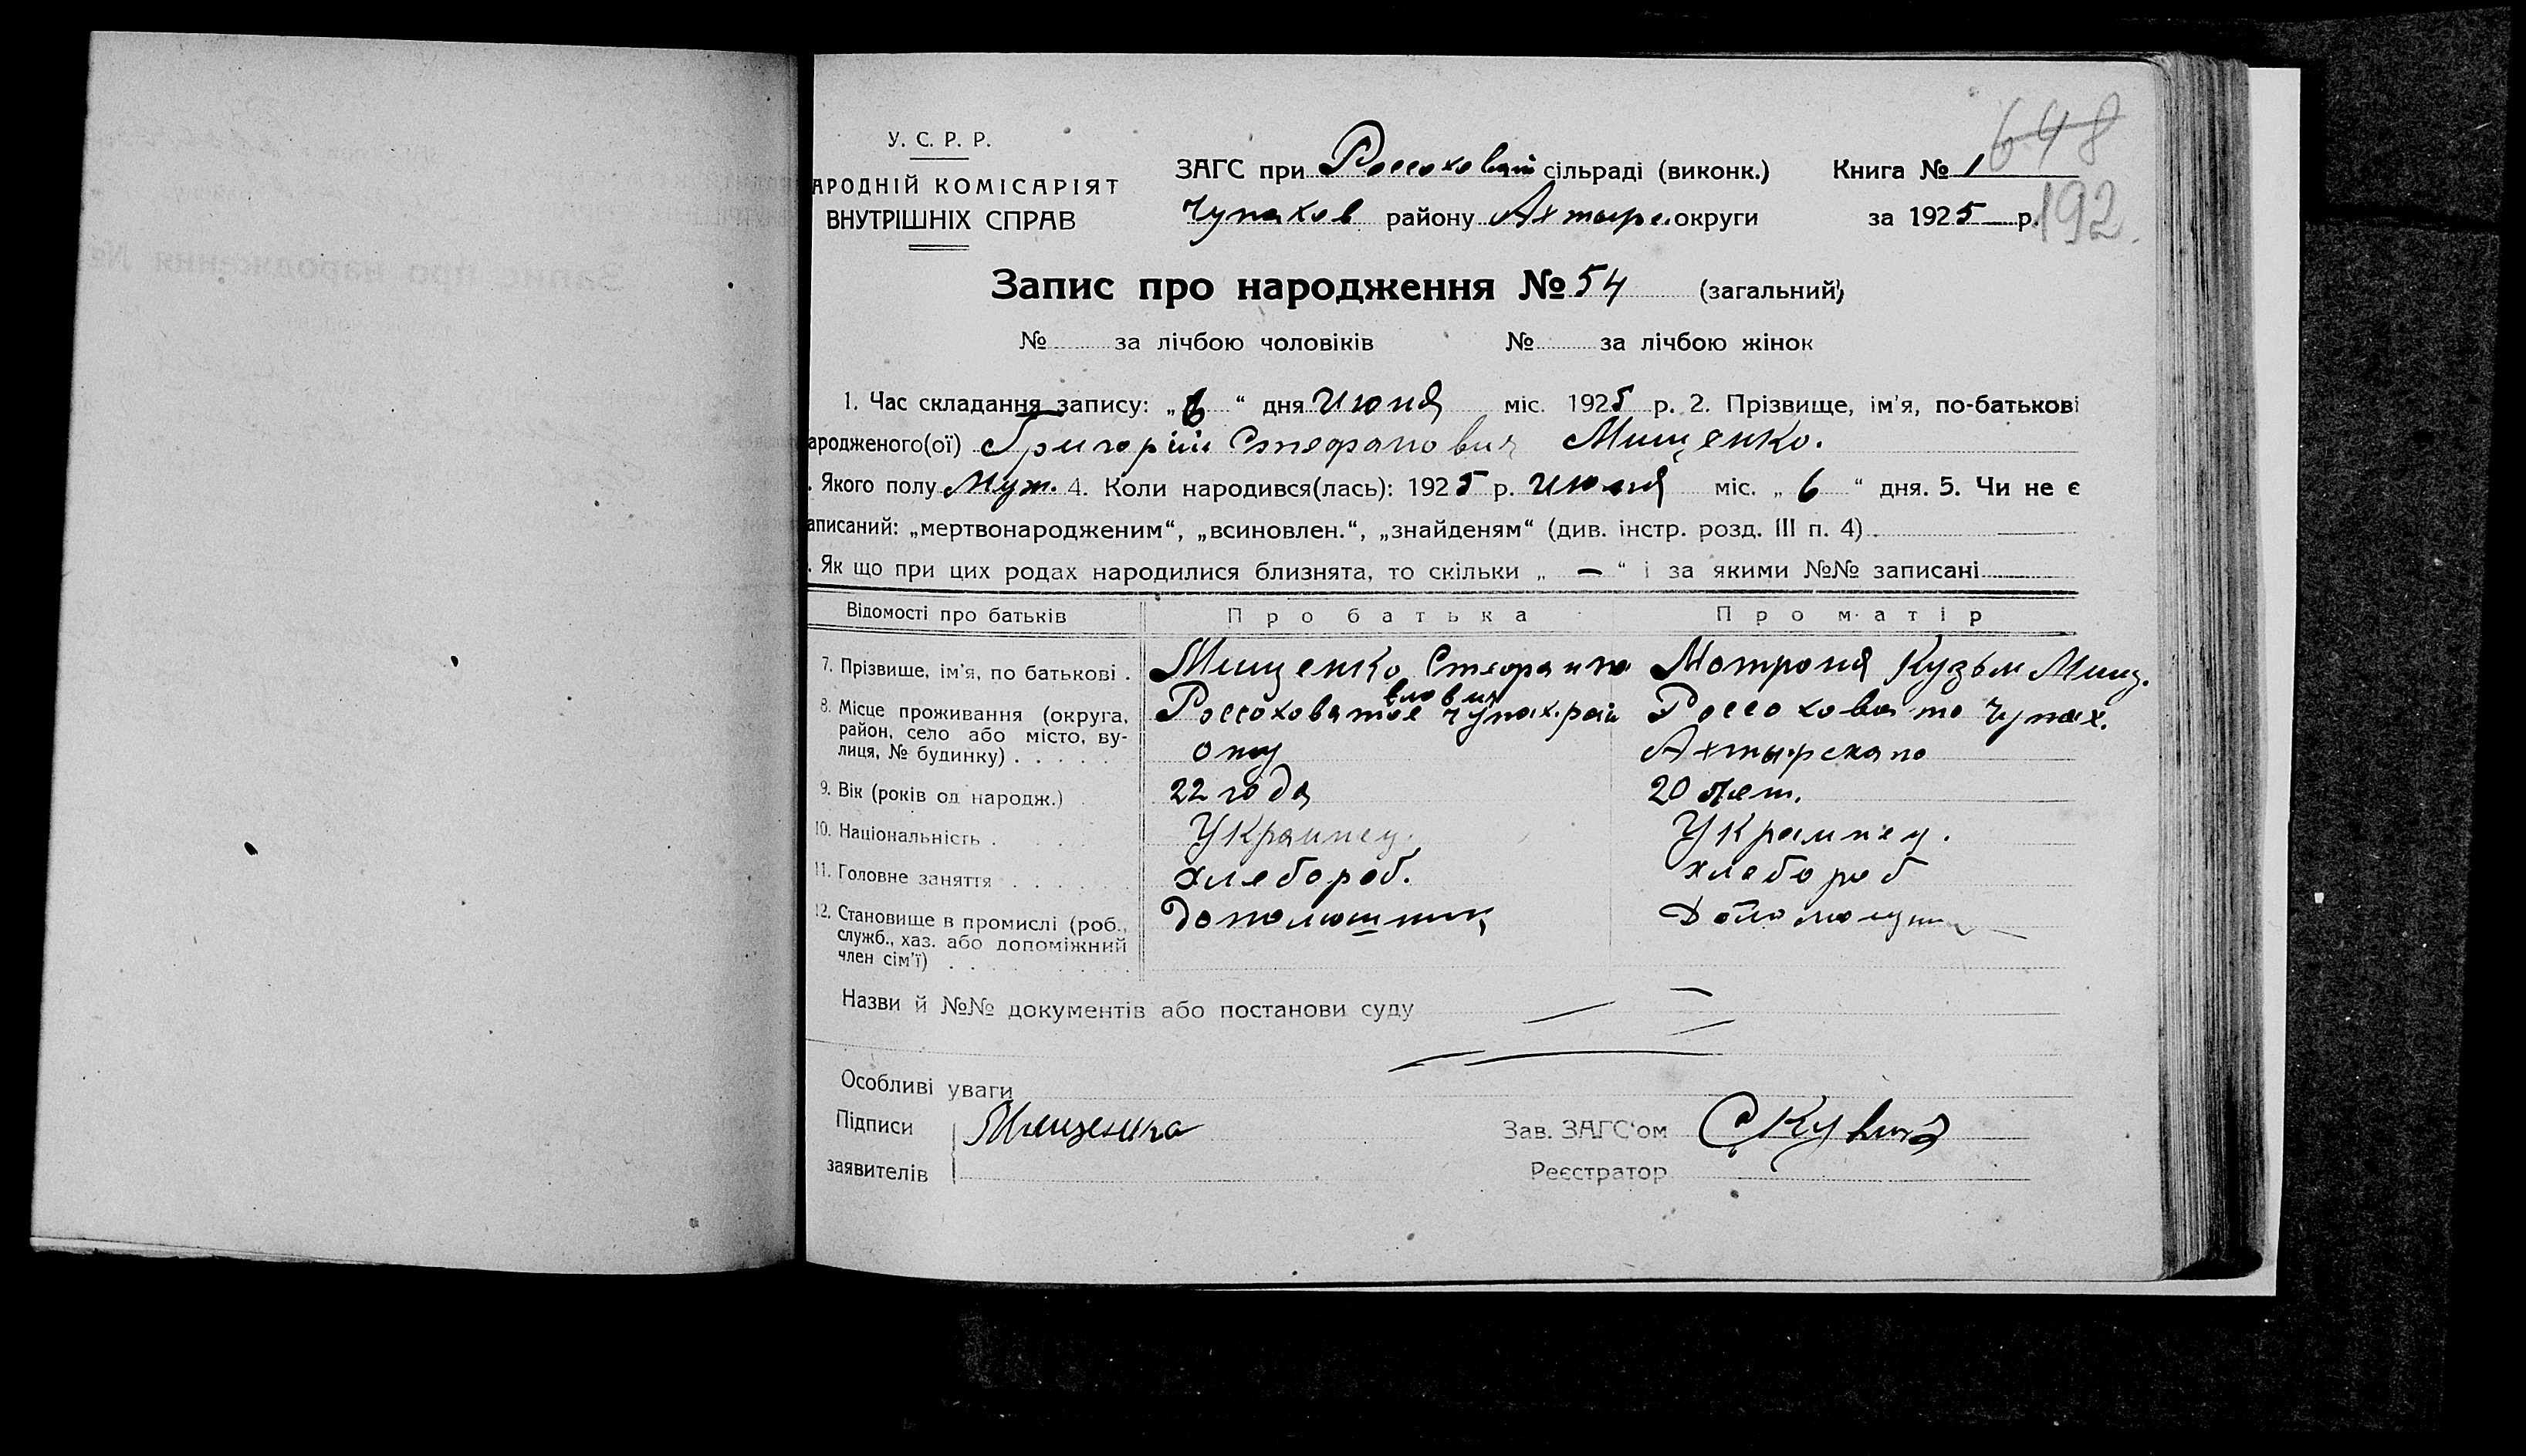 648
У. С. Р. Р.
АРОДНІЙ КОМІСАРІЯТ
ВНУТРІШНІХ СПРАВ
ЗАГС при Россоховат сільраді (виконк.) Книга № 1
Чупахов району Ахтырс. округи за 1925 р.
192.
Запис про народження № 54 (загальний)
№ за лічбою чоловіків № за лічбою жінок
1. Час складання запису: „6“ дня июня міс. 1925 р. 2. Прізвище, ім'я, по-батькові
ародженого(ої) Григорий Стефанович Мищенко.
. Якого полу муж. 4. Коли народився(лась): 1925 р. июня міс. „6“ дня. 5. Чи не є
аписаний: „мертвонародженим“, „всиновлен.“, „знайденям“ (див. інстр. розд. III п. 4) .
. Як що при цих родах народилися близнята, то скільки „ — “ і за якими №№ записані
Відомості про батьків Про батька Про матір
7. Прізвище, ім'я, по батькові . Мищенко Стефан Мотроня Кузьм Мищ.
8. Місце проживання (округа, Россоховатое Чупах. рай Россоховато Чупах.
район, село або місто, ву-
лиця, № будинку) . . . . . Ахтырскаго
9. Вік (років од народж.) 22 года 20 лет.
10. Національність . Украинец. Украинец.
11. Головне заняття . . . . . . хлебороб. хлебороб
12. Становище в промислі (роб.,
служб., хаз. або допоміжний
член сім'ї) . . . . . . . .
Назви й №№ документів або постанови суду
Особливі уваги
Підписи Мищенко Зав. ЗАГС'ом
заявителів Реєстратор